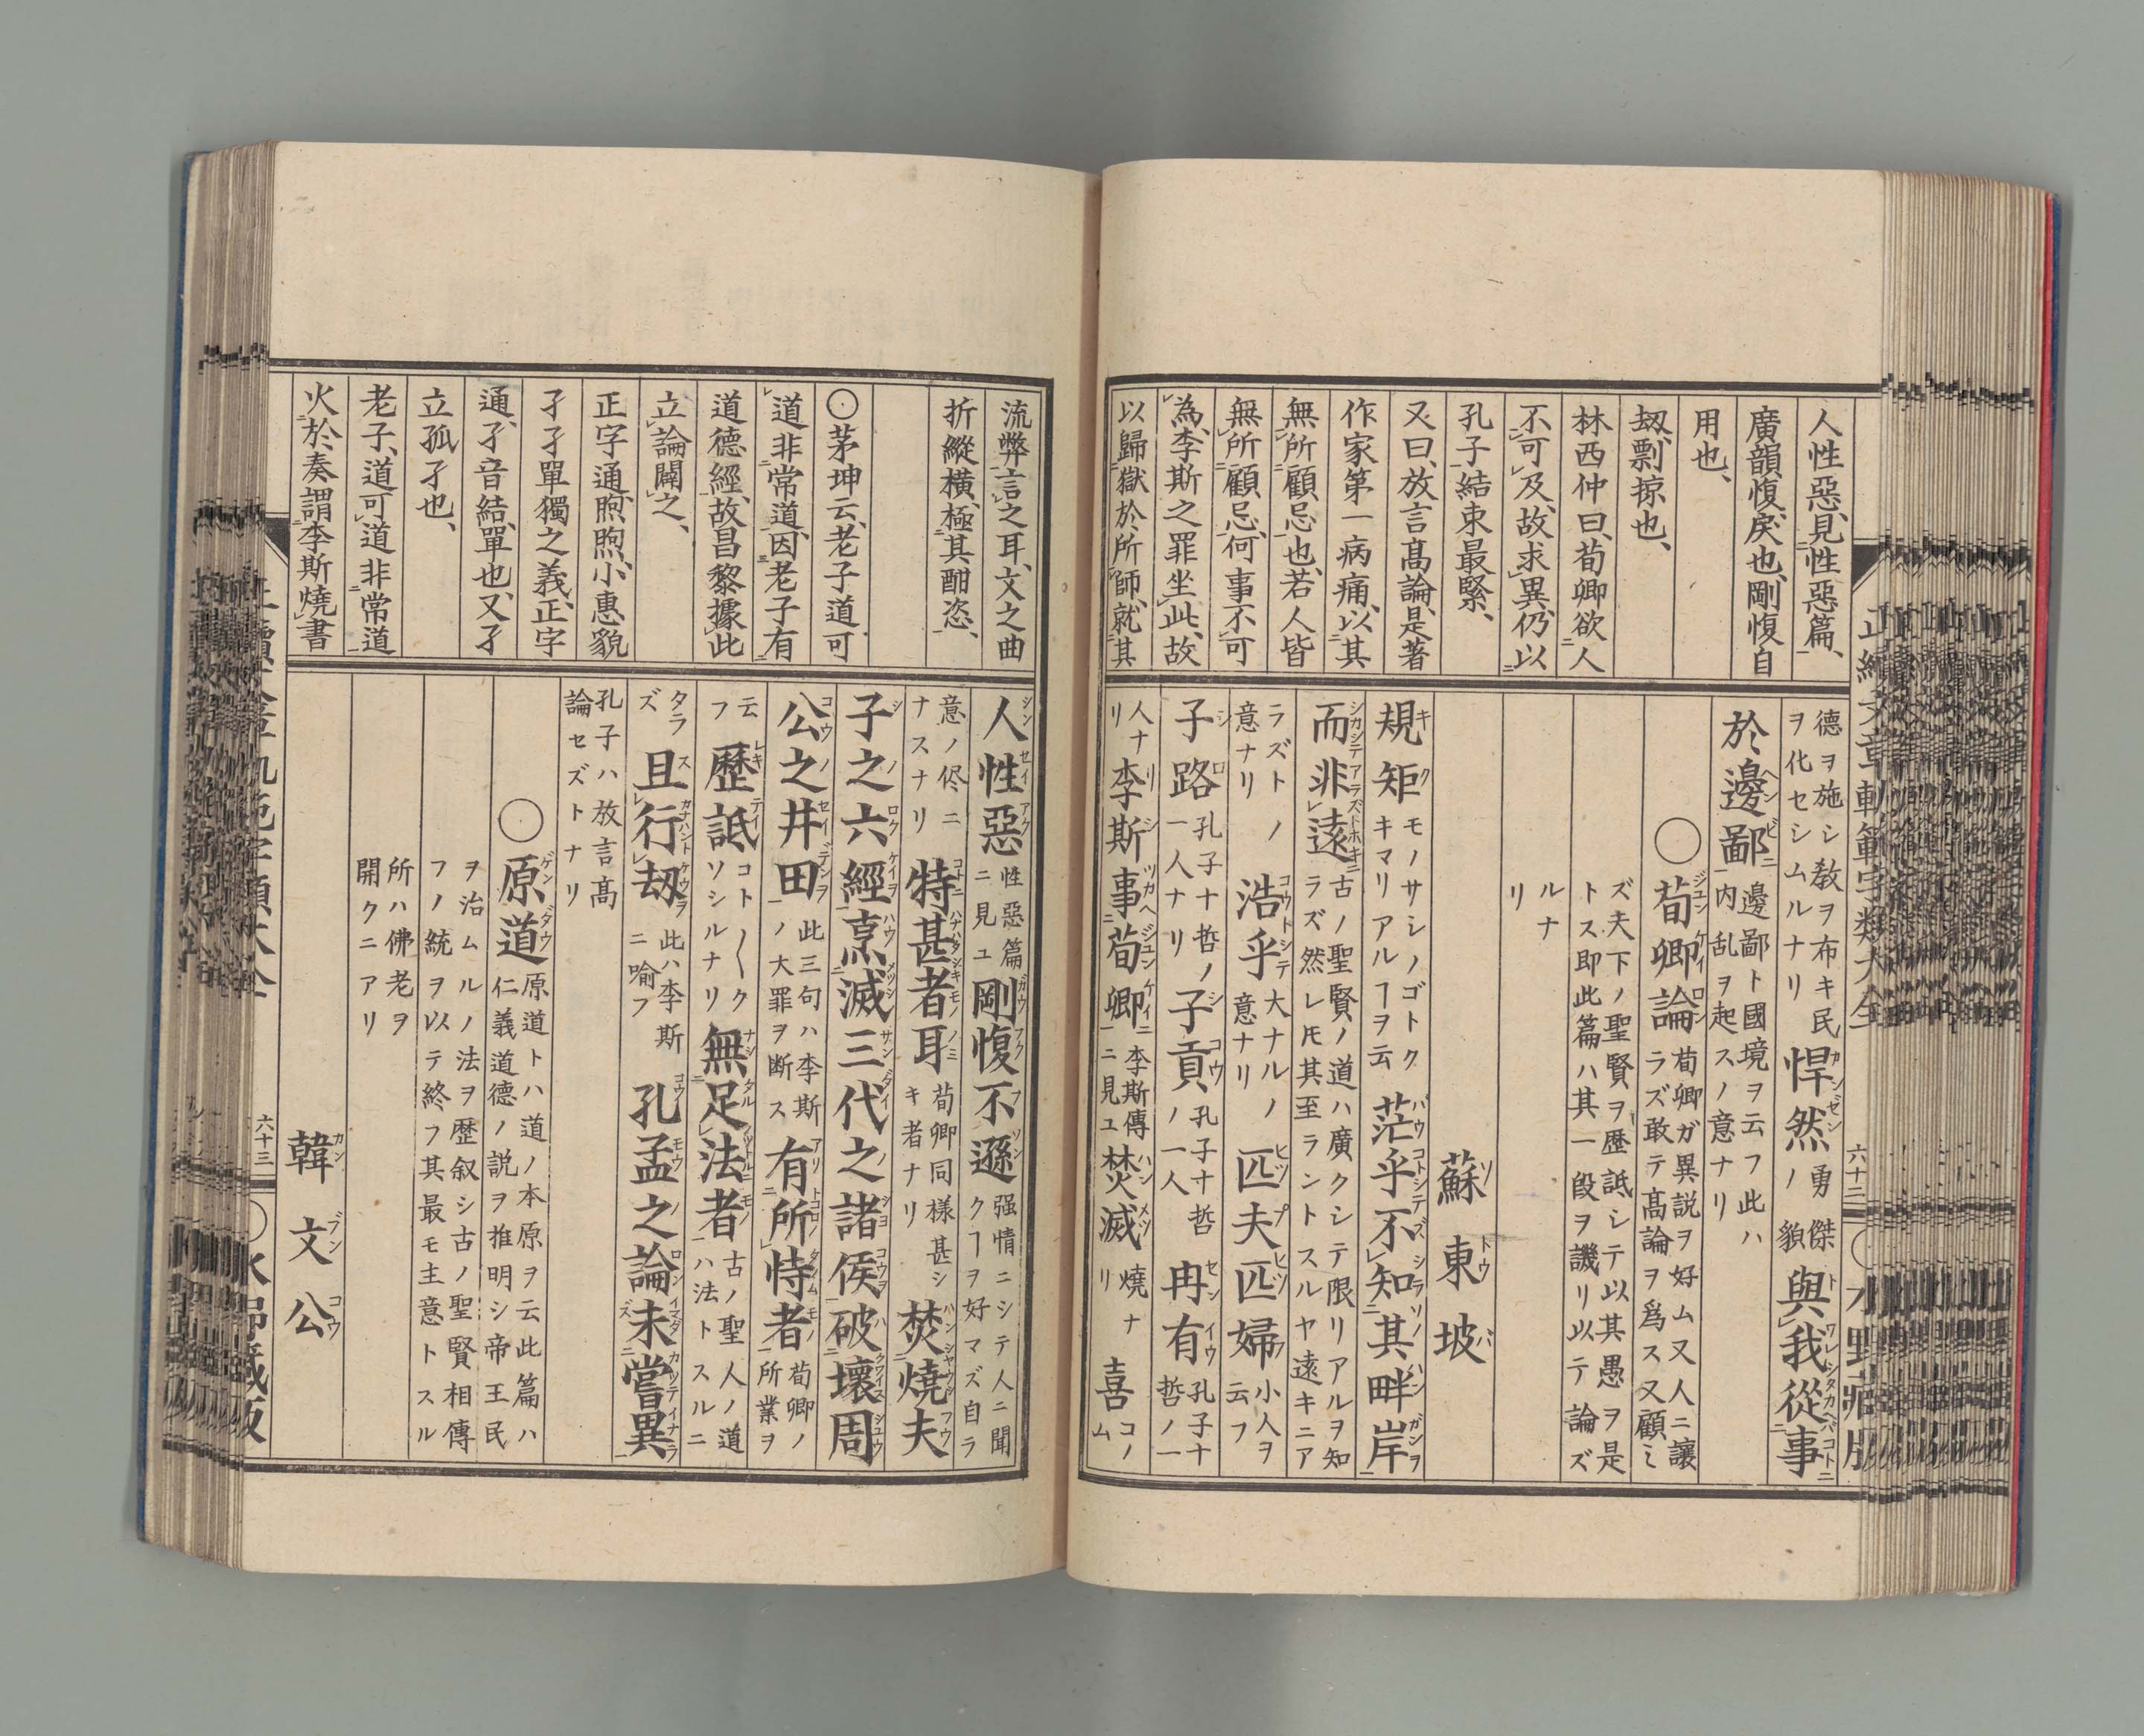 人性惡、見性惡篇、
廣韻、愎、戾也、剛愎自
用也、
刼、剽掠也、
林西仲曰、荀卿欲人
不可及、故求異、仍以
孔子結束最緊、
又曰、放言髙論、是著
作家第一病痛、以其
無所顧忌也、若人皆
無所顧忌、何事不可
為、李斯之罪坐此、故
以歸獄於所師、就其
德ヲ施シ敎ヲ布キ民
ヲ化セシムルナリ
悍然
勇傑
ノ貌
與我從事
於邊鄙
邊鄙ト國境ヲ云フ此ハ
内乱ヲ起スノ意ナリ
〇荀卿論
荀卿ガ異説ヲ好ム又人ニ讓
ラズ敢テ髙論ヲ爲ス又顧ミ
ズ夫下ノ聖賢ヲ歴詆シテ以其愚ヲ是
トス即此篇ハ其一段ヲ譏リ以テ論ズ
ルナ
リ
蘇東坡
規矩
モノサシノゴトク
キマリアルヿヲ云
茫乎不知其畔岸
而非遠
古ノ聖賢ノ道ハ廣クシテ限リアルヲ知
ラズ然レ𪜈其至ラントスルヤ遠キニア
ラズト
意ナリ
ノ
浩乎
大ナルノ
意ナリ
匹夫匹婦
小人ヲ
云フ
子路
孔子十哲ノ
一人ナリ
子貢
孔子十哲
ノ一人
冉有
孔子十
哲ノ一
人ナ
リ
李斯事荀卿
李斯傳
ニ見ユ
焚滅
燒ナ
リ
喜
コノ
ム
正續文章軌範字類大全
六十二
〇水野藏版
流弊言之耳、文之曲
折縱橫、極其酣恣、
〇茅坤云、老子道可
道非常道、因老子有
道德經、故昌黎據此
立論闢之、
正字通、煦煦、小惠貌
孑孑單獨之義、正字
通、孑、音結、單也、又孑
立孤孑也、
老子、道可道非常道
火於奏、謂李斯燒書
人性惡
性惡篇
ニ見ユ
剛愎不遜
强情ニシテ人ニ聞
クヿヲ好マズ自ラ
意ノ侭ニ
ナスナリ
特甚者耳
荀卿同様甚シ
キ者ナリ
焚燒夫
子之六經烹滅三代之諸侯破壞周
公之井田
此三句ハ李斯
ノ大罪ヲ断ス
有所恃者
荀卿ノ
所業ヲ
云
フ
歷詆
コト〱ク
ソシルナリ
無足法者
古ノ聖人ノ道
ハ法トスルニ
タラ
ズ
且行刼
此ハ李斯
ニ喩フ
孔孟之論未嘗異
孔子ハ放言髙
論セズトナリ
〇原道
原道トハ道ノ本原ヲ云此篇ハ
仁義道德ノ説ヲ推明シ帝王民
ヲ治ムルノ法ヲ歴叙シ古ノ聖賢相傳
フノ統ヲ以テ終フ其最モ主意トスル
所ハ佛老ヲ
開クニアリ
韓文公
六十三